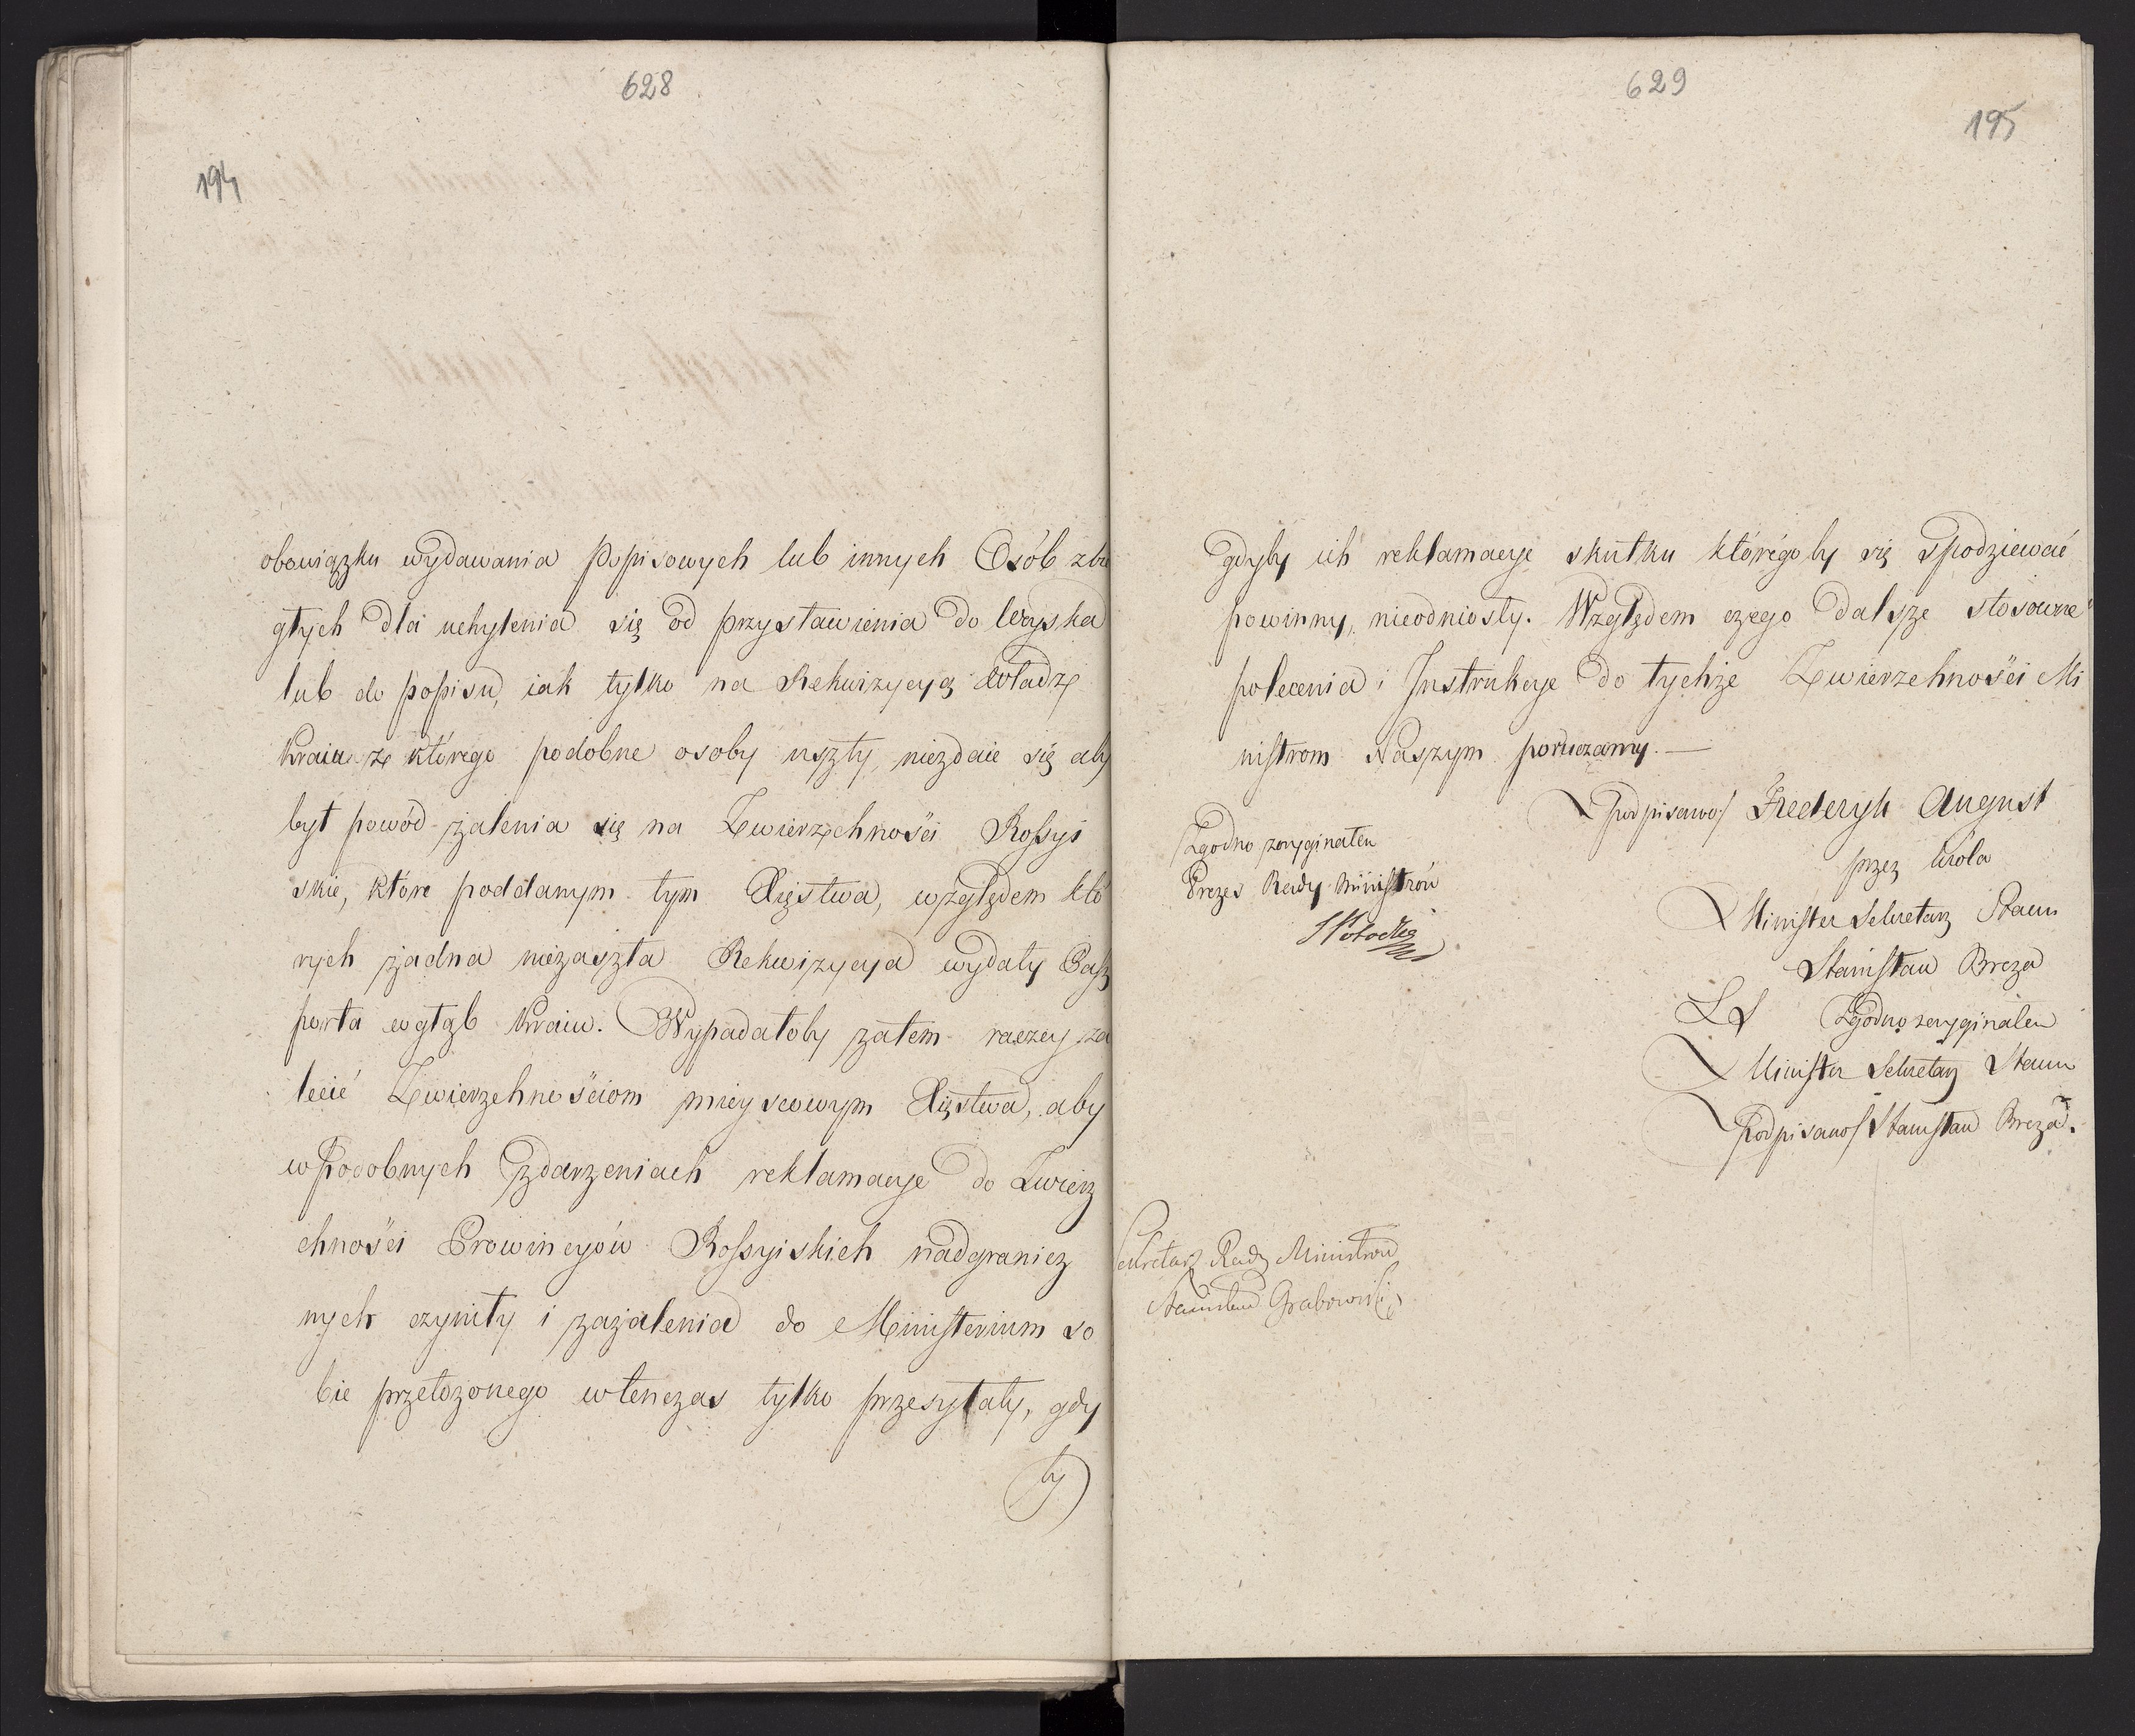 628
194
obowiązku wydawania Popisowych lub innych Osób zbie
głych dla uchylenia się od przystawienia do Woyska
lub do popisu, iak tylko na Rekwizycyą Władzy
kraiu z którego podobne osoby uszły, niezdaie się aby
był powód żalenia się na Zwierzchności Rossyi
skie, które poddanym tym Xięstwa, względem któ
rych żadna niezaszła Rekwizycya wydały Pasz
porta wgłąb kraiu. Wypadałoby zatem raczey za
lecić Zwierzchnościom mieyscowym Xięstwa, aby
w podobnych zdarzeniach reklamacye do Zwierz
chności Prowincyów Rossyiskich nadgranicz
nych czyniły i zażalenia do Ministerium so
bie przełożonego wtenczas tylko przesyłały, gdy
by
629
195
gdyby ich reklamacye skutku którégoby się spodziewać
powinny, nieodniosły. Względem czego dalsze stosowne
polecenia i Instrukcye do tychże Zwierzchności Mi
nistrom Naszym poruczamy. —
Podpisano/ Frederyk August
przez Króla
Minister Sekretarz Stanu
Stanisław Breza
LS Zgodno zoryginałem
Minister Sekretarz Stanu
Podpisano/ Stanisław Breza.
Zgodno zoryginałem
Prezes Rady Ministrów
S Potocki
Sekretarz Rady Ministrów
Stanisław Grabowski